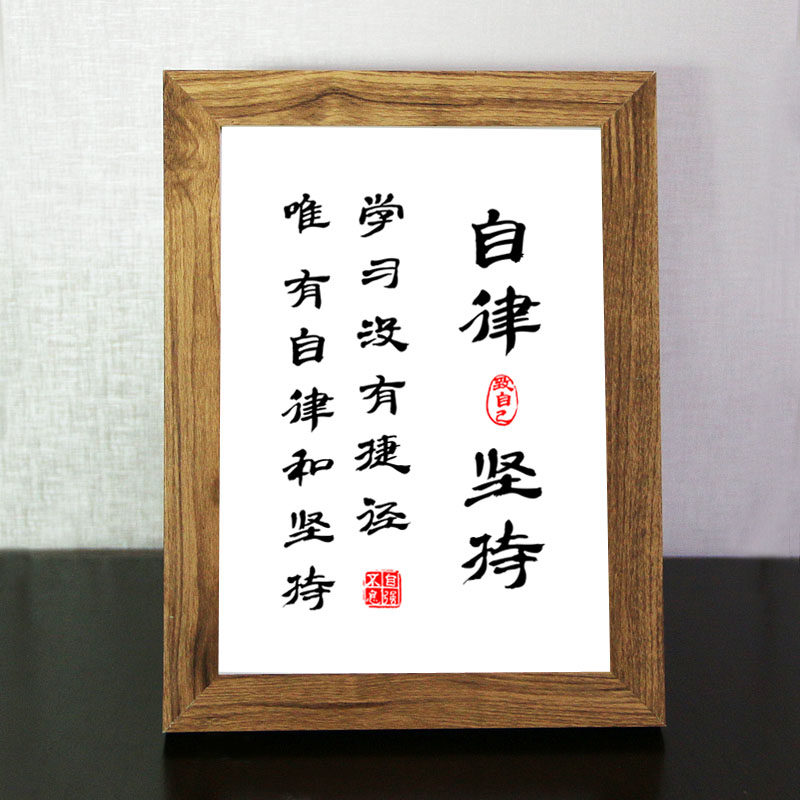 自律
致自己
坚持
学习没有捷径
自强不息
唯有自律和坚持